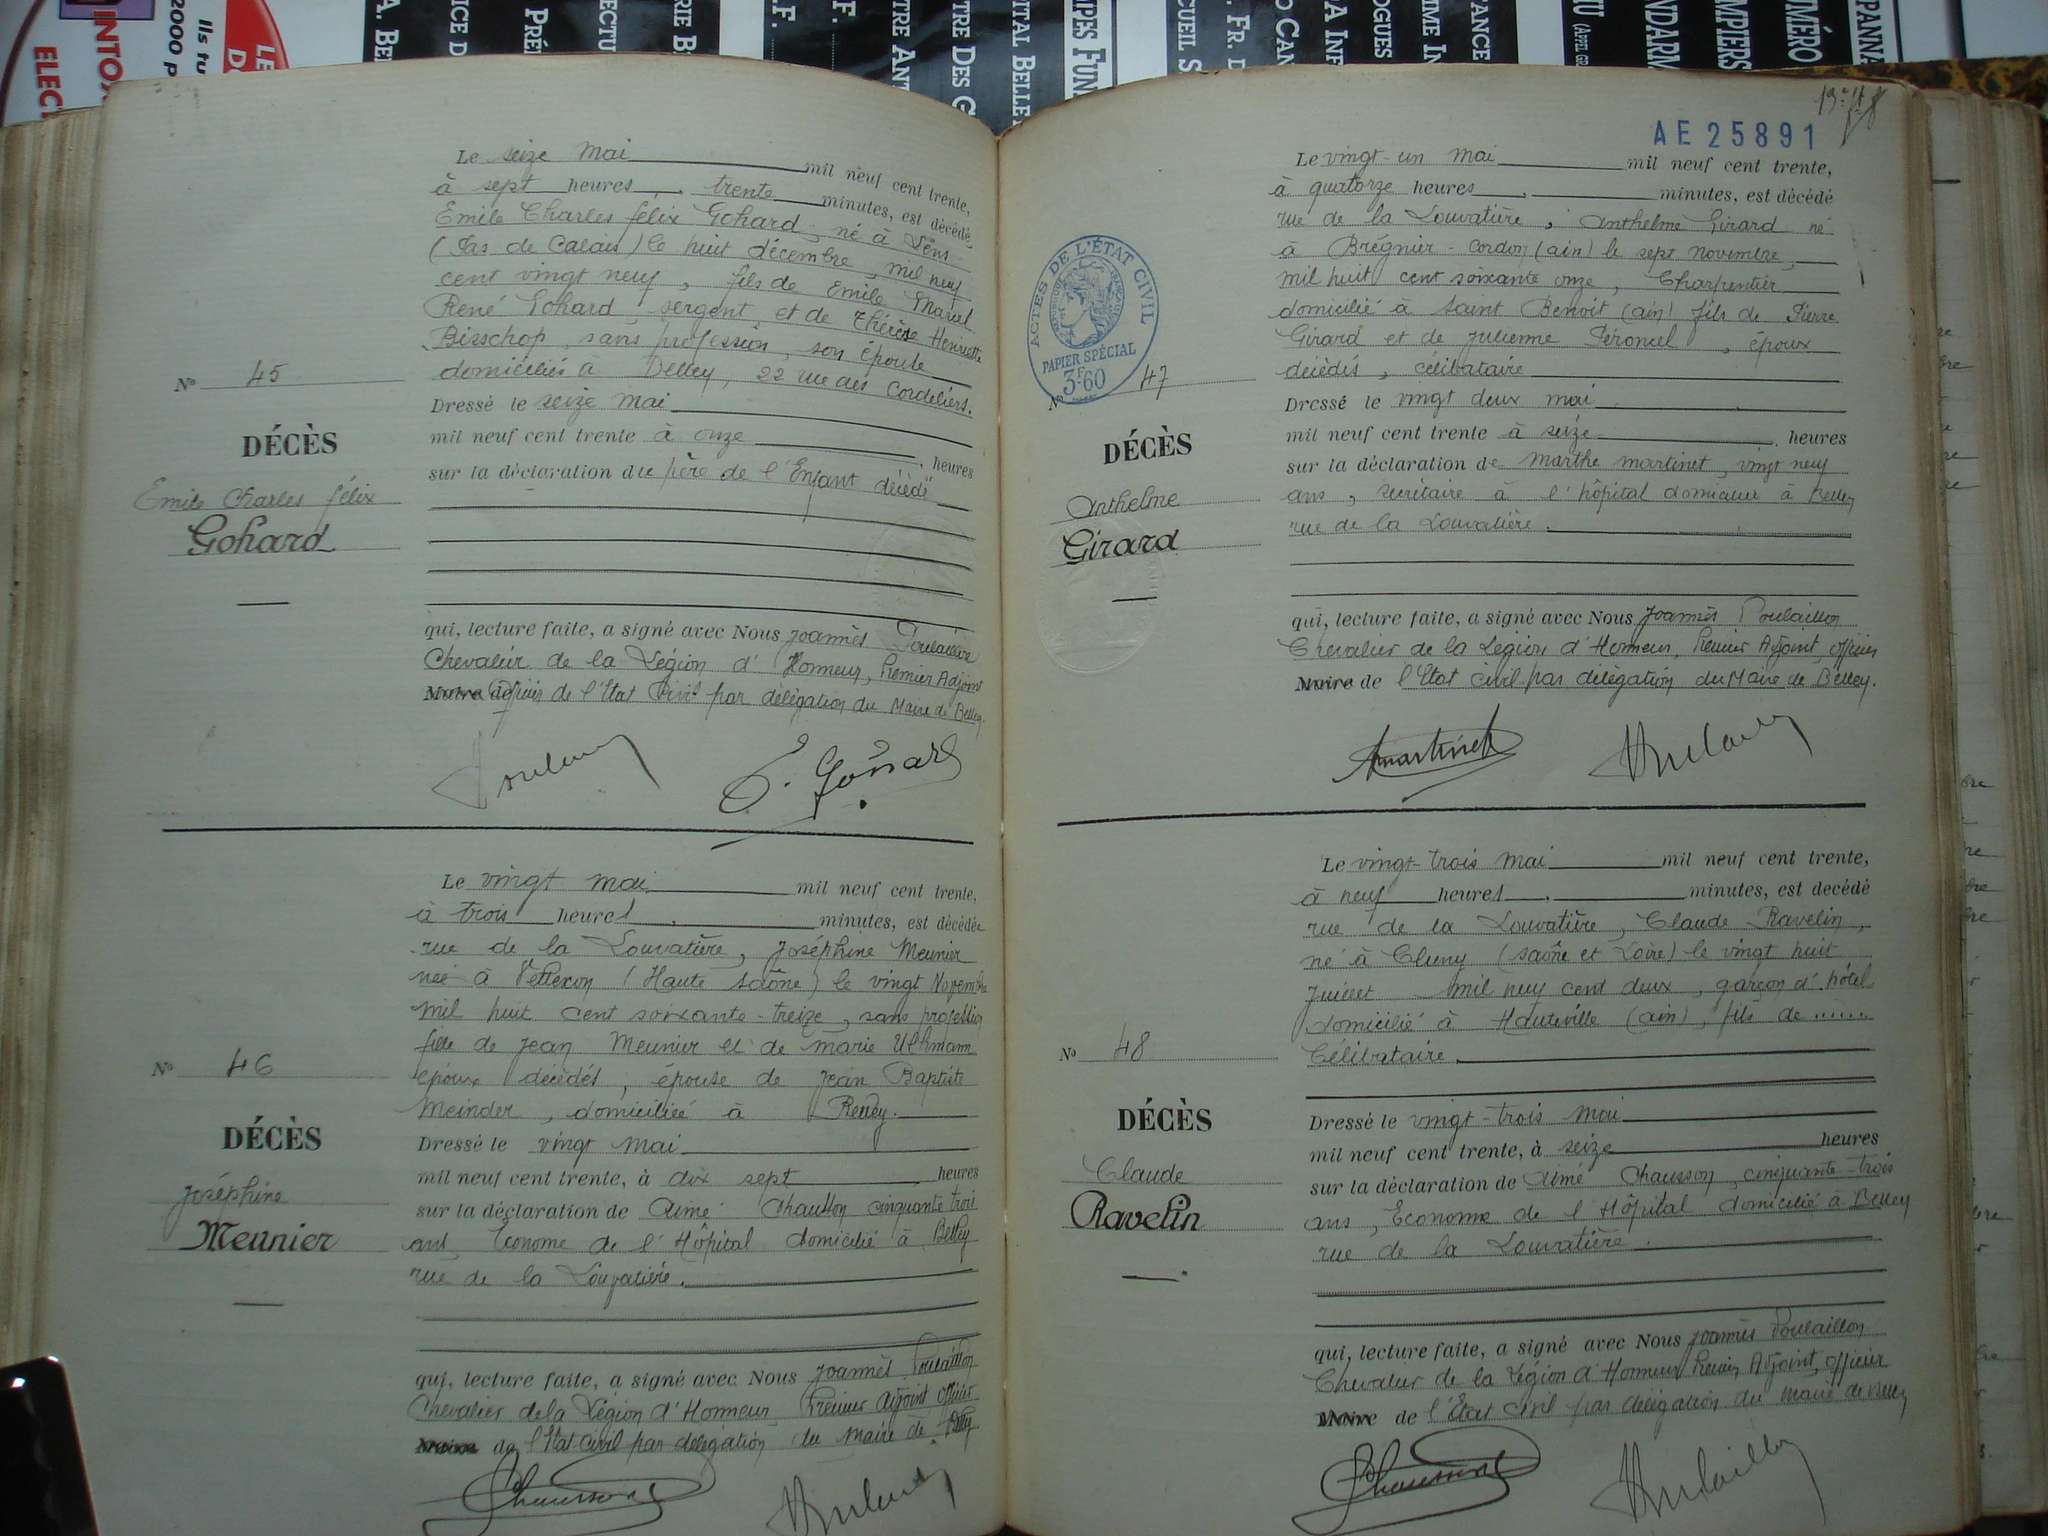 Le seize Mai mil neuf cent trente,
à sept heures, trente minutes, est décédé,
Emile Charles félix Gohard, né à Lens
(Pas de Calais) le huit décembre, mil neuf
cent vingt neuf, fils de Emile Marcel
René Gohard, sergent, et de Thérèse Henriette
Bisschop, sans profession, son épouse
domiciliés à Belley, 22 rue des Cordeliers.
Nº 45
Dressé le seize mai
mil neuf cent trente à onze heures
DÉCÈS
sur la déclaration du père de l'Enfant décédé
Emile Charles félix
Gohard
qui, lecture faite, a signé avec Nous Joannès Poulaillon
Chevalier de la Légion d'Honneur, Premier Adjoint
Maire de Officier de l'Etat Civil par délégation du Maire de Belley.
E. Gohard
Le vingt mai mil neuf cent trente,
à trois heures, minutes, est décédée
rue de la Louvatière, Joséphine Meunier
née à (Haute Saône) le vingt Novembre
mil huit cent soixante-treize, sans profession
fille de Jean Meunier et de Marie
époux décédés, épouse de Jean Baptiste
Meinder, domiciliée à
Nº 46
Dressé le vingt mai
DÉCÈS
mil neuf cent trente, à dix sept heures
Joséphine
sur la déclaration de Aimé Chausson cinquante trois
Meunier
ans, Econome de l'Hôpital domicilié à Belley
rue de la Louvatière.
qui, lecture faite, a signé avec Nous Joannès Poulaillon
Chevalier de la Légion d'Honneur Premier Adjoint officier
Maire de l'Etat civil par délégation du Maire de Belley
Chausson
AE 25891
Le vingt-un mai mil neuf cent trente,
à quatorze heures, minutes, est décédé
rue de la Louvatière, Anthelme Girard né
à Brégnier-Cordon (ain) le sept novembre,
mil huit cent soixante onze, Charpentier
domicilié à Saint Benoit (ain) fils de Pierre
Girard et de Julienne, époux
décédés, célibataire
ACTES DE L'ÉTAT CIVIL
PAPIER SPÉCIAL
3F.60
Nº 47
Dressé le vingt deux mai
mil neuf cent trente à seize heures
DÉCÈS
sur la déclaration de Marthe Martinet, vingt neuf
Anthelme
ans, secrétaire à l'hôpital domiciliée à Belley
Girard
rue de la Louvatière.
qui, lecture faite, a signé avec Nous Joannès Poulaillon
Chevalier de la Légion d'Honneur, Premier Adjoint, officier
Maire de l'Etat civil par délégation du Maire de Belley.
Martinet
Le vingt-trois mai mil neuf cent trente,
à neuf heures, minutes, est décédé
rue de la Louvatière, Claude Ravelin,
né à Cluny (Saône et Loire) le vingt huit
Juillet mil neuf cent deux, garçon d'hôtel
domicilié à Hauteville (ain), fils de ......
Célibataire.
Nº 48
DÉCÈS
Dressé le vingt-trois mai
mil neuf cent trente, à seize heures
Claude
sur la déclaration de Aimé Chausson, cinquante-trois
Ravelin
ans, Econome de l'Hôpital domicilié à Belley
rue de la Louvatière.
qui, lecture faite, a signé avec Nous Joannès Poulaillon
Chevalier de la Légion d'Honneur Premier Adjoint, officier
Maire de l'Etat Civil par délégation du Maire de Belley
Chausson
Poulaillon